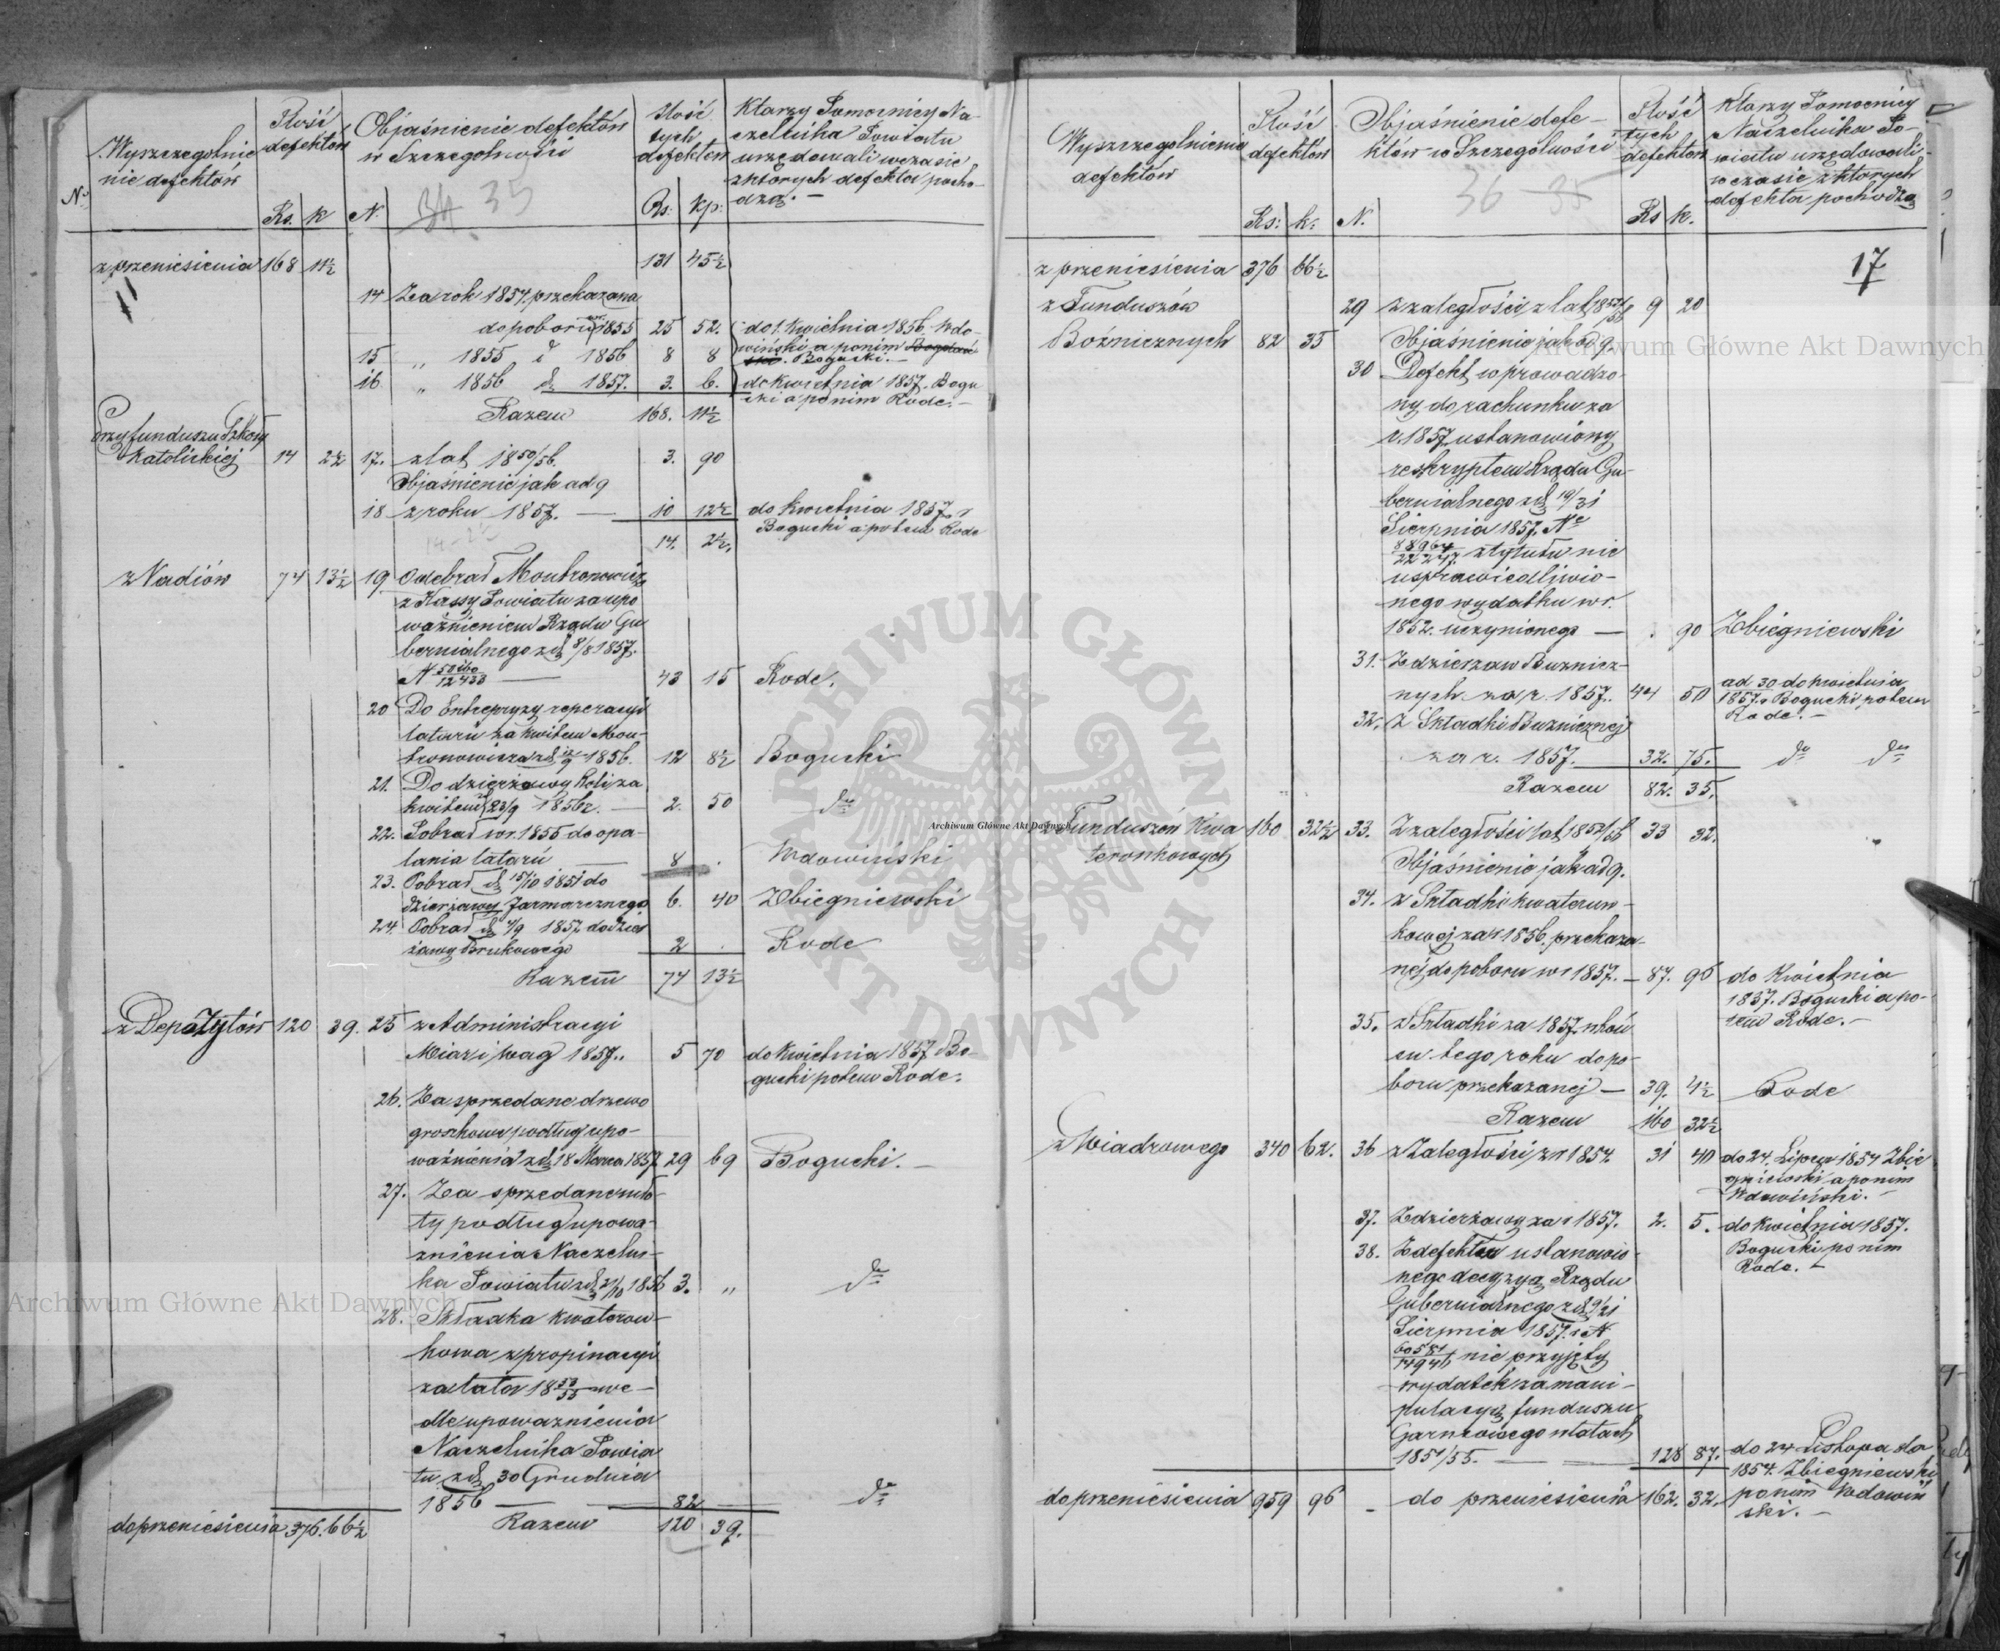 Wyszczególnie
nie defektów
Ilość
defektów
Objaśnienie defektów
w Szczególności
Ilość
tych
defektów
Którzy Pomocnicy Na-
czelnika Powiatu
urzędowali w czasie
z których defekta pocho-
dzą. —
No
Rs. k N. 35 Rs. kp:
z przeniesienia 168 11½ 131 45½
14 Za rok 1854. przekazana
do poboru 1855 25 52. do 1. Kwietnia 1856. Wdo-
wiński a po nim
15 „ 1855 i 1856 8 8 Bogucki. —
16 „ 1856 d. 1857. 3. 6. do Kwietnia 1857. Bogu
cki a po nim Rode. —
Razem 168. 11½
Przy funduszu Szkoły
Katolickiej 14 2½ 17. z lat 1850/56. 3. 90
Objaśnienie jak ad 9
18 z roku 1857. — 10 12½ do Kwietnia 1857. r
Bogucki a potem Rode
14. 2½.
z Vadiów 74 13½ 19 Odebrał Montronowicz
z Kassy Powiatu za upo
ważnieniem Rządu Gu
bernialnego z d. 8/8 1857.
N 50160/12433 — 43 15 Rode.
20 Do Entrepryzy reperacyi
latarń za kwitem Mon-
tronowicza z d. 1856. 12 8½ Bogucki
21. Do dzierżawy Kolizza
kwitem 23/9 1856 r. — 2. 50 do
22. Pobrał w r. 1855 do opa-
lania latarń — 8 . Wdowiński
23. Pobrał d. 15/10 1851 do
dzierżawy Jarmarcznego 6. 40 Zbiegniewski
24. Pobrał d. 4/9 1857 do dzier
żawy Brukowego 2 . Rode
Razem 74 13½
z Depozytów 120 39. 25 z Administracyi
Miar i wag 1857.. 5 70 do Kwietnia 1857 Bo-
gucki potem Rode.
26. Za sprzedane drzewo
groszkowe podług upo-
ważnienia z d. 18 Marca 1857 29 69 Bogucki. —
27. Za sprzedane
ty podług upowa-
żnienia Naczelni-
ka Powiatu z d. 21/10 1856 3. „ do
28. Składka kwaterun-
kowa z propinacyi
za lata 18 53/55 we-
dle upoważnienia
Naczelnika Powia
tu z d. 30 Grudnia
1856 — 82 — do
do przeniesienia 376. 66½ Razem 120 39.
Wyszczególnienie
defektów
Ilość
defektów
Objaśnienie defe-
któw w Szczególności
Ilość
tych
defektów
Którzy Pomocnicy
Naczelnika Po-
wiatu urzędowali
w czasie z których
defekta pochodzą
36 35
Rs: k: N. Rs k.
17
z przeniesienia 376 66½
z Funduszów
Bóźnicznych 82 35
29 z zaległości z lat 1852/56 9 20
Objaśnienie jak ad 9.
30 Defekt wprowadzo-
ny do rachunku za
r. 1857. ustanowiony
reskryptem Rządu Gu-
bernialnego z d. 19/31
Sierpnia 1857. No
88964/22247. z tytułu nie
usprawiedliwio-
nego wydatku w r.
1852. uczynionego — . 90 Zbiegniewski
31. Z dzierżaw Bużnicz-
nych za r. 1857. 44 50 ad 30 do Kwietnia
1857. Bogucki potem
Rode. —
32. z Składki Bużnicznej
za r. 1857. 32. 75. do do
Razem 82. 35.
Funduszów Kwa
terunkowych 160 32½ 33. Z zaległości lat 1852/56 33 32.
Objaśnienie jak ad 9.
34. z Składki kwaterun-
kowej za r 1856. przekaza-
nej do poboru w r 1857. — 87. 96 do Kwietnia
1857. Bogucki a po-
tem Rode. —
35. z Składki za 1857. w koń
cu tego roku do po-
boru przekazanej — 39. 4½ Rode
Razem 160 32½
z Wiadrowego 340 62. 36 z Zaległości z r 1854. 31 40 do 24. Lipca 1854 Zbie
gniewski a po nim
Wdowiński. —
37. Z dzierżawy za r 1857. 2. 5. do Kwietnia 1857.
Bogucki po nim
Rode. —
38. Z defektu ustanowio-
nego decyzyą Rządu
Gubernialnego z d. 9/21
Sierpnia 1857. r N
60581/14946 nie przyjęty
wydatek za mani-
pulacyą funduszu
Garncowego w latach
1851/55. — 128 87. do 24 Listopada
1854. Zbiegniewski
po nim Wdowiń
ski. —
do przeniesienia 959 96 — do przeniesienia 162. 32.
Archiwum Główne Akt Dawnych
Archiwum Główne Akt Dawnych
Archiwum Główne Akt Dawnych
ARCHIWUM GŁÓWNE AKT DAWNYCH